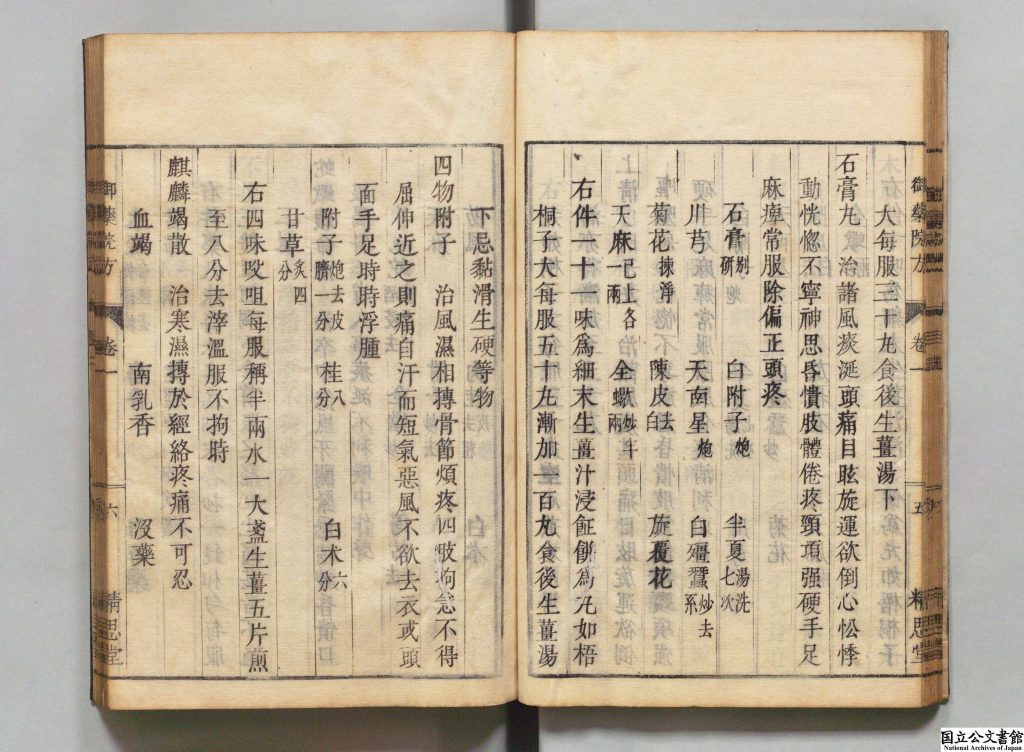 御藥院方 卷一 五 精思堂
大每服三十丸食後生薑湯下
石膏丸 治諸風痰涎頭痛目眩旋運欲倒心忪悸
動恍惚不寧神思昏憒肢體倦疼頸項强硬手足
麻痺常服除偏正頭疼
石膏别研 白附子炮 半夏湯洗七次
川芎 天南星炮 白殭蠶炒去系
菊花揀淨 陳皮去白 旋覆花
天麻已上各一兩 全蠍炒半兩
右件一十一味爲細末生薑汁浸飪餠為丸如梧
桐子大每服五十丸漸加一百丸食後生薑湯
下忌黏滑生硬等物
四物附子 治風濕相摶骨節煩疼四肢拘急不得
屈伸近之則痛自汗而短氣惡風不欲去衣或頭
面手足時時浮腫
附子炮去皮臍一分 桂八分 白朮六分
甘草炙四分
右四味㕮咀每服稱半兩水一大盞生薑五片煎
至八分去滓溫服不拘時
麒麟竭散 治寒濕摶於經絡疼痛不可忍
血竭 南乳香 沒藥
御藥院方 卷一 六 精思堂
国立公文書館
National Archives of Japan